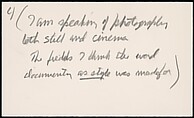 4/ (I am speaking of photography
both still and cinema
The fields I think the word
documentary as style was made for)